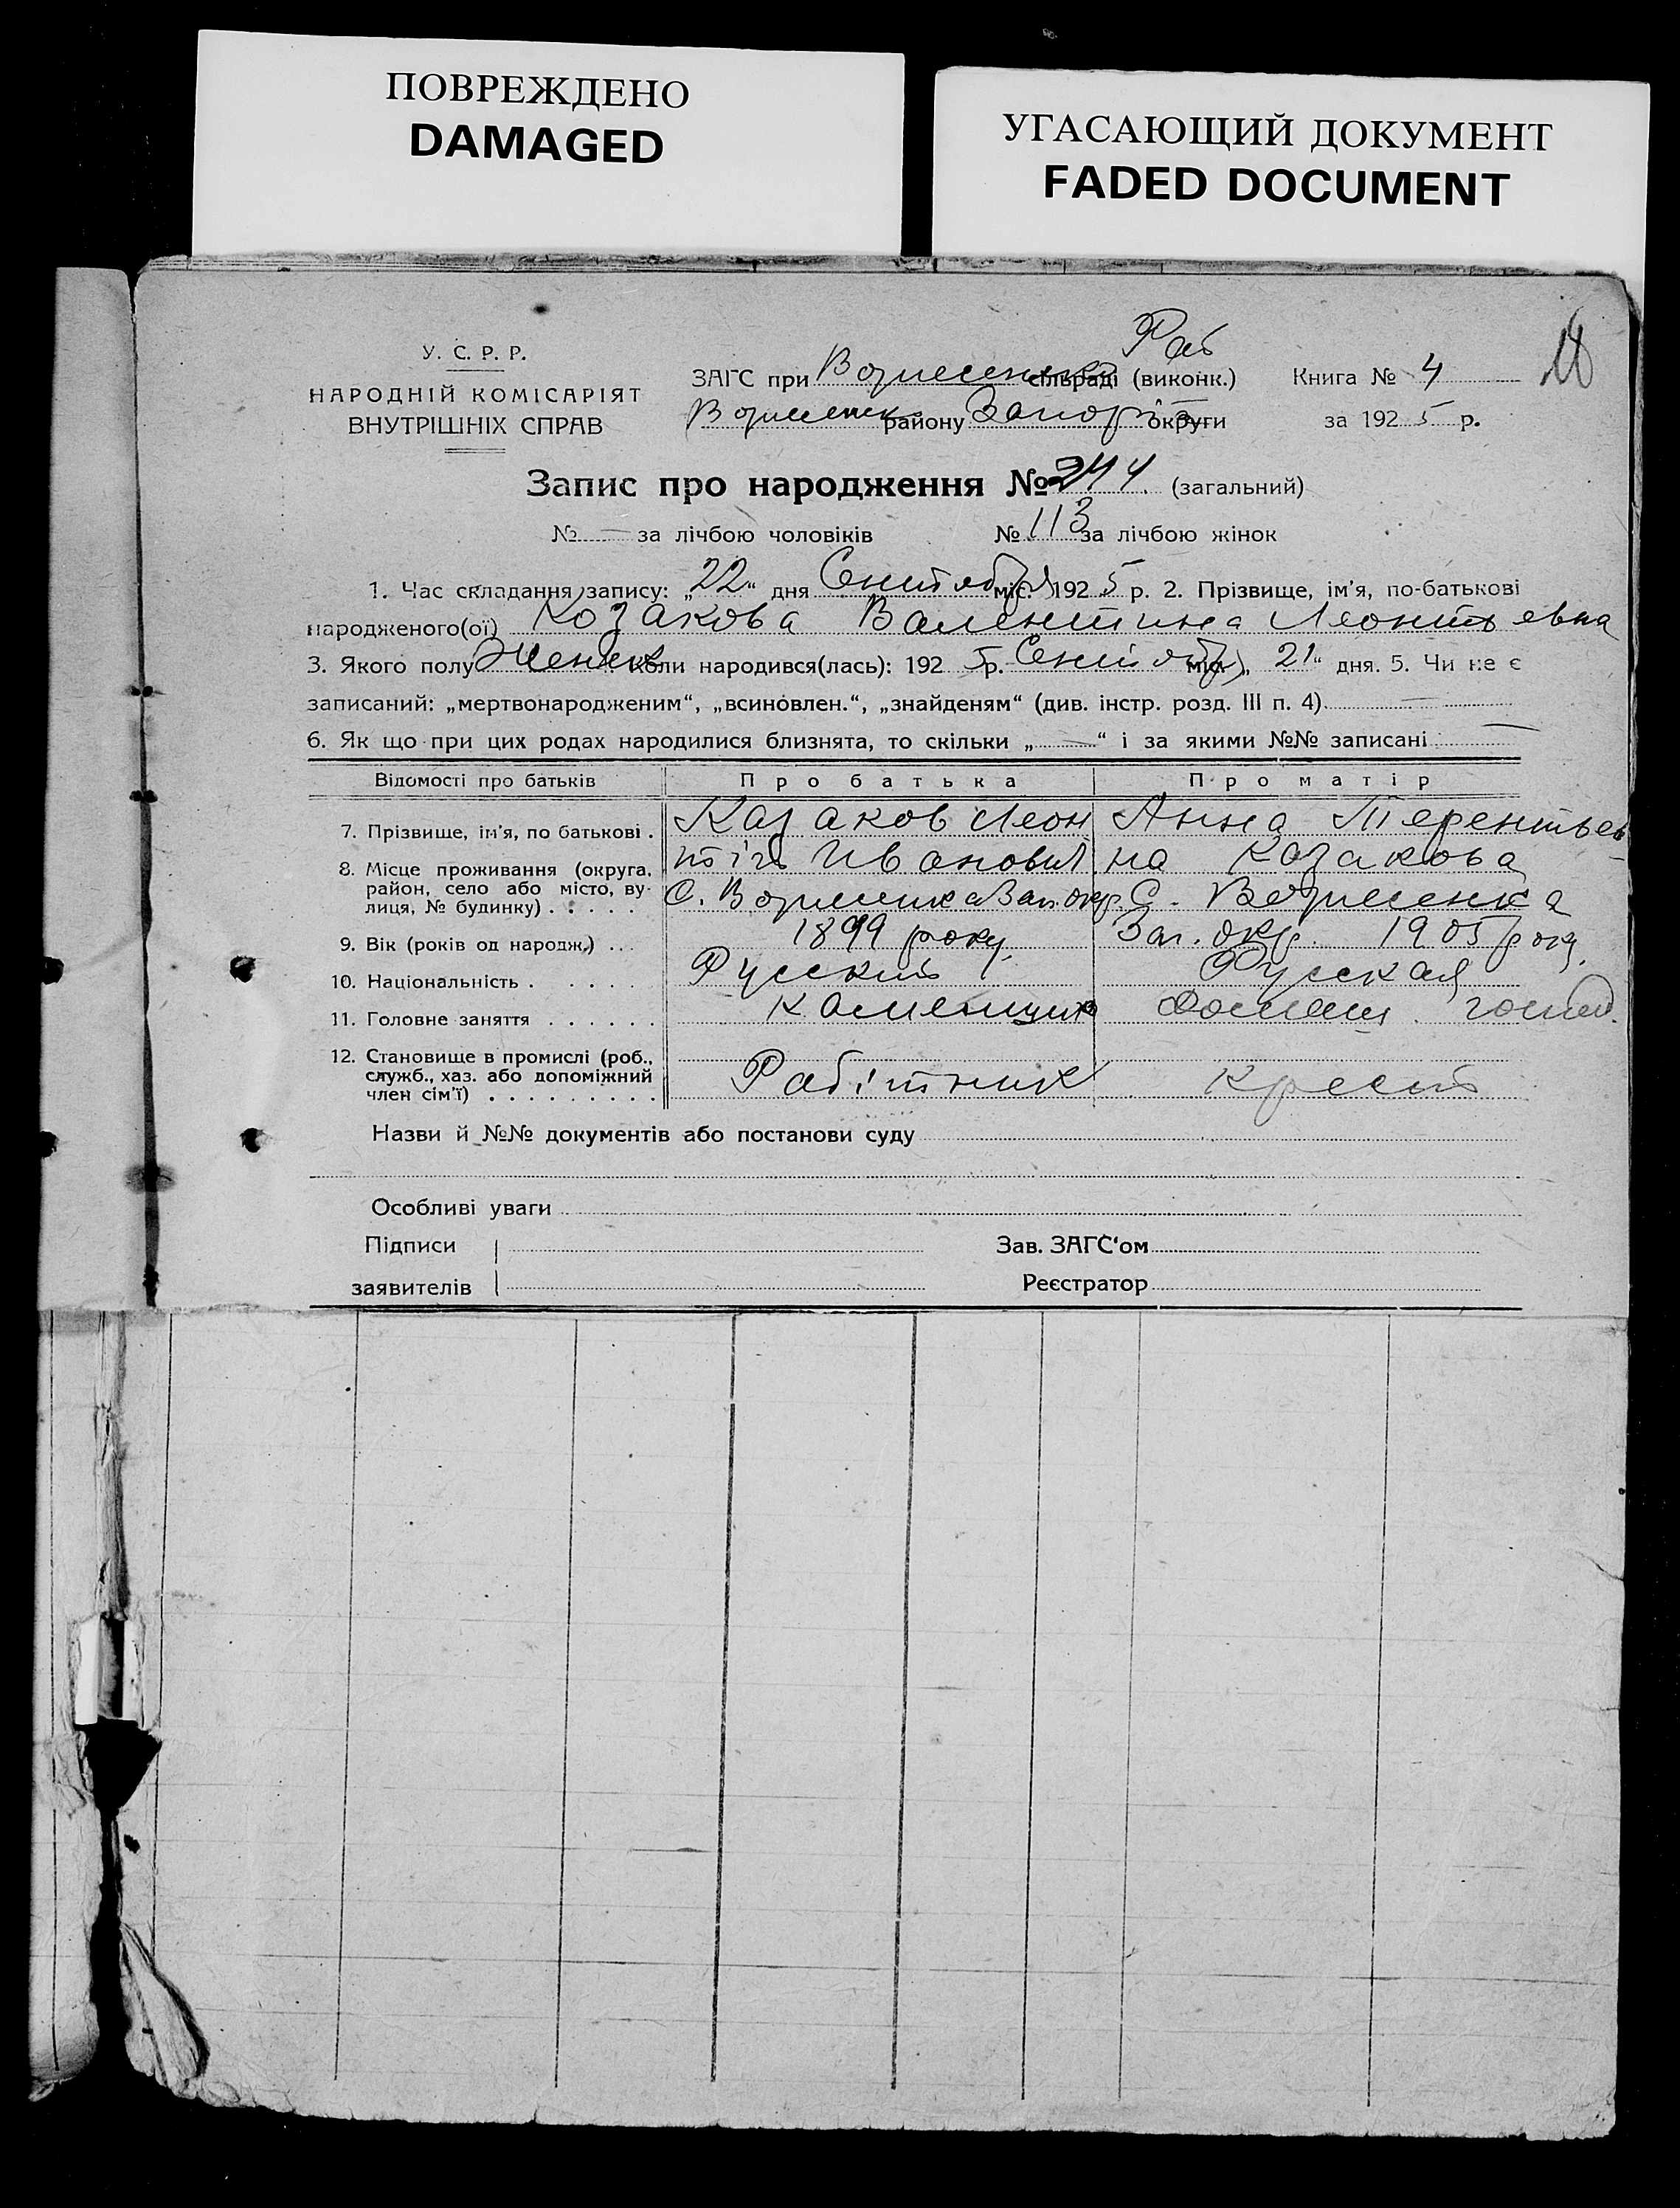 ПОВРЕЖДЕНО
DAMAGED
УГАСАЮЩИЙ ДОКУМЕНТ
FADED DOCUMENT
У. С. Р. Р.
НАРОДНІЙ КОМІСАРІЯТ
ВНУТРІШНІХ СПРАВ
Рай
ЗАГС при Вознесенско сільраді (виконк.) Книга № 4
Вознесенск району Запоріз округи за 1925 р.
Запис про народження № 244 (загальний)
№ — за лічбою чоловіків № 113 за лічбою жінок
1. Час складання запису: „22“ дня Сентября міс. 1925 р. 2. Прізвище, ім'я, по-батькові
народженого(ої) Козакова Валентина Леонтьевна
3. Якого полу Женск Коли народився(лась): 1925 р. Сентября міс. „21“ дня. 5. Чи не є
записаний: „мертвонародженим“, „всиновлен.“, „знайденям“ (див. інстр. розд. III п. 4) —
6. Як що при цих родах народилися близнята, то скільки „—“ і за якими №№ записані —
Відомості про батьків Про батька Про матір
7. Прізвище, ім'я, по батькові . Казаков Леон Анна Терентьев
8. Місце проживання (округа, район, село або місто, вулиця, № будинку) . . . . . Иванович на Казакова
С. Вознесенка Зап. окр. С. Вознесенка
9. Вік (років од народж.) . . . 1899 року. Зап. окр. 1905 року.
10. Національність . . . . . Русский Русская
11. Головне заняття . . . . . . Каменщик Домашн. госпд.
12. Становище в промислі (роб., служб., хаз. або допоміжний член сім'ї) . . . . . . . . . Робітник крест
Назви й №№ документів або постанови суду
Особливі уваги
Підписи Зав. ЗАГС'ом
заявителів Реєстратор